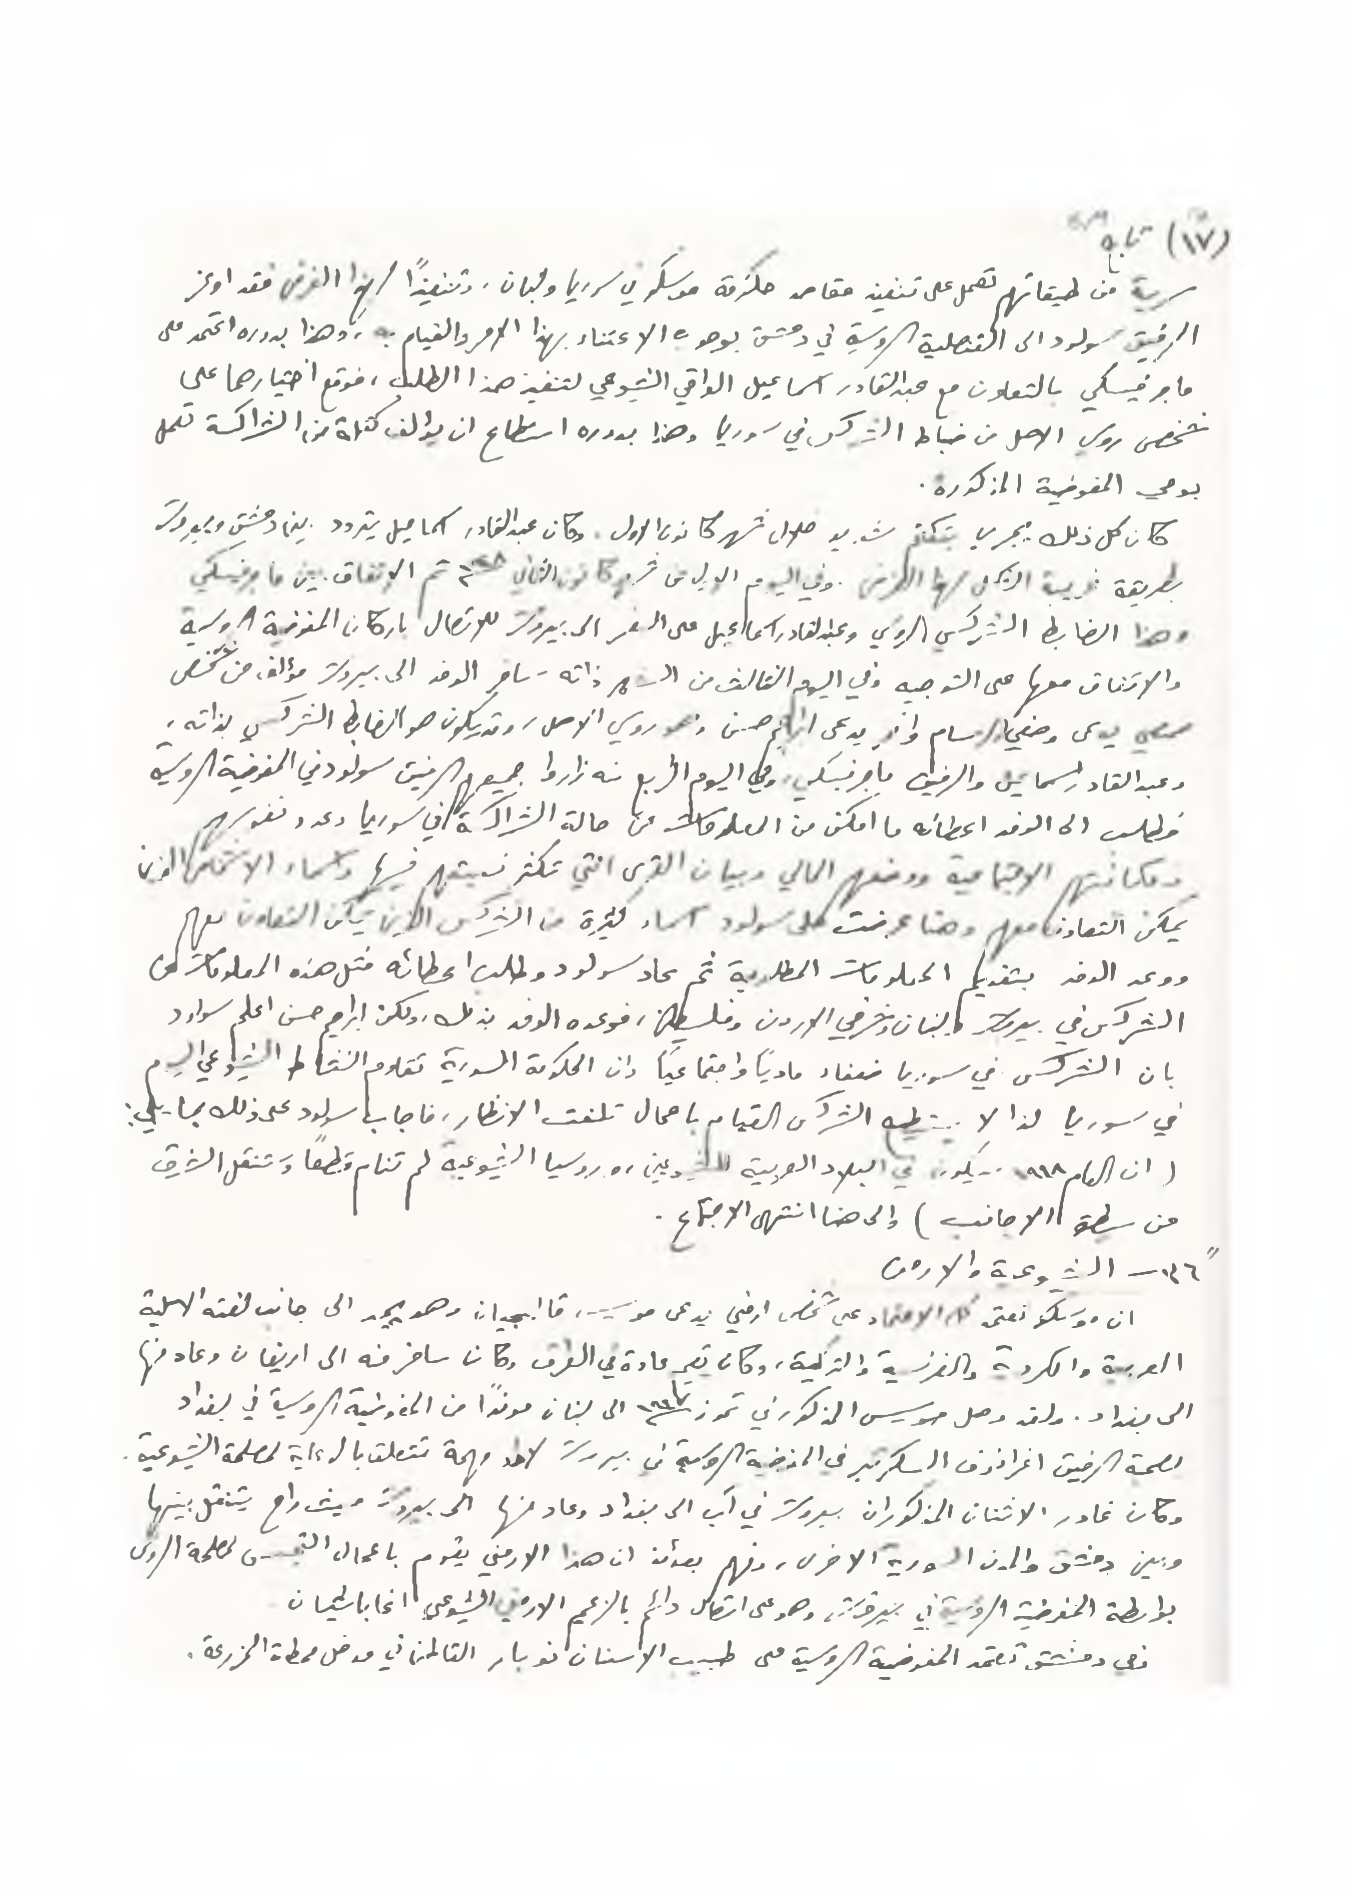 (١٧) تابع
سرية من طبقاتهم تعمل على تنفيذ مقاصد حكومة موسكو في سوريا ولبنان، وتنفيذاً لهذا الغرض فقد اوعز
الرفيق سولود الى القنصلية الروسية في دمشق بوجوب الاعتناء بهذا الامر والقيام به، وهذا بدوره اعتمد على
ماجرفيسكي بالتعاون مع عبدالقادر اسماعيل العراقي الشيوعي لتنفيذ هذا الطلب، فوقع اختيارهما على
شخص روسي الاصل من ضباط الشركس في سوريا وهذا بدوره استطاع ان يؤلف كتلة من الشراكسة تعمل
بوحي المفوضية المذكورة.
كان كل ذلك يجري بتكتم شديد خلال شهر كانون الاول. وكان عبدالقادر اسماعيل يتردد بين دمشق وبيروت
بطريقة غريبة الشكل لهذا الغرض. وفي اليوم الاول من شهر كانون الثاني تم الاتفاق بين ماجرفيسكي
وهذا الضابط الشركسي الروسي وعبدالقادر اسماعيل على السفر الى بيروت للاتصال باركان المفوضية الروسية
والاتفاق معها على التوجيه وفي اليوم الثالث من الشهر ذاته سافر الوفد الى بيروت مؤلف من شخص
حمصي يدعى وصفي الرسام وآخر يدعى ابراهيم حسن وهو روسي الاصل، وقد يكون هو الضابط الشركسي بذاته،
وعبدالقادر اسماعيل والرفيق ماجرفيسكي، وفي اليوم الرابع منه زاروا جميعهم الرفيق سولود في المفوضية الروسية
فطلب الى الوفد اعطائه ما امكن من المعلومات عن حالة الشراكسة في سوريا وعدد نفوسهم
ومكانتهم الاجتماعية ووضعهم المالي وبيان القرى التي تكثر نسبتهم فيها واسماء الاشخاص الذين
يمكن التعاون معهم وهنا عرضت على سولود اسماء كثيرة من الشركس الذين يمكن التعاون معهم
ووعد الوفد بتقديم المعلومات المطلوبة ثم عاد سولود وطلب اعطائه مثل هذه المعلومات عن
الشركس في بيروت ولبنان وشرقي الاردن وفلسطين، فوعده الوفد بذلك، ولكن ابراهيم حسن اعلم سولود
بان الشركس في سوريا ضعفاء مادياً واجتماعياً وان الحكومة السورية تقاوم النشاط الشيوعي اليوم
في سوريا لذا لا يستطيع الشركس القيام باعمال تلفت الانظار، فاجاب سولود على ذلك بما يلي:
( ان العام ١٩٤٨ سيكون في البلاد العربية للشيوعيين، وروسيا الشيوعية لم تنام قطعاً وستنقل الشرق
من سيطرة الاجانب ) والى هنا انتهى الاجتماع.
الشيوعية والارمن
ان موسكو تعتمد كل الاعتماد على شخص ارمني يدعى موسيس قاابجيان وهو يجيد الى جانب لغته الاصلية
العربية والكردية والفرنسية والتركية، وكان يقيم عادة في العراق وكان سافر منه الى اريفان وعاد منها
الى بغداد. ولقد وصل موسيس المذكور في تموز الى لبنان موفداً من المفوضية الروسية في بغداد
لصحبة الرفيق اغرانوف السكرتير في المفوضية الروسية في بيروت لاخذ مهمة تتعلق بالدعاية لمصلحة الشيوعية.
وكان غادر الاثنان المذكوران بيروت في آب الى بغداد وعاد منها الى بيروت حيث راح يتنقل بينها
وبين دمشق والمدن السورية الاخرى، وفهم بعدئذ ان هذا الارمني يقوم باعمال التجسس لمصلحة الروس
بواسطة المفوضية الروسية في بيروت، وهو على اتصال دائم بالزعيم الارمني الشيوعي
وفي دمشق تعتمد المفوضية الروسية على طبيب الاسنان نوبار القاطن في مدخل محطة المزرعة.